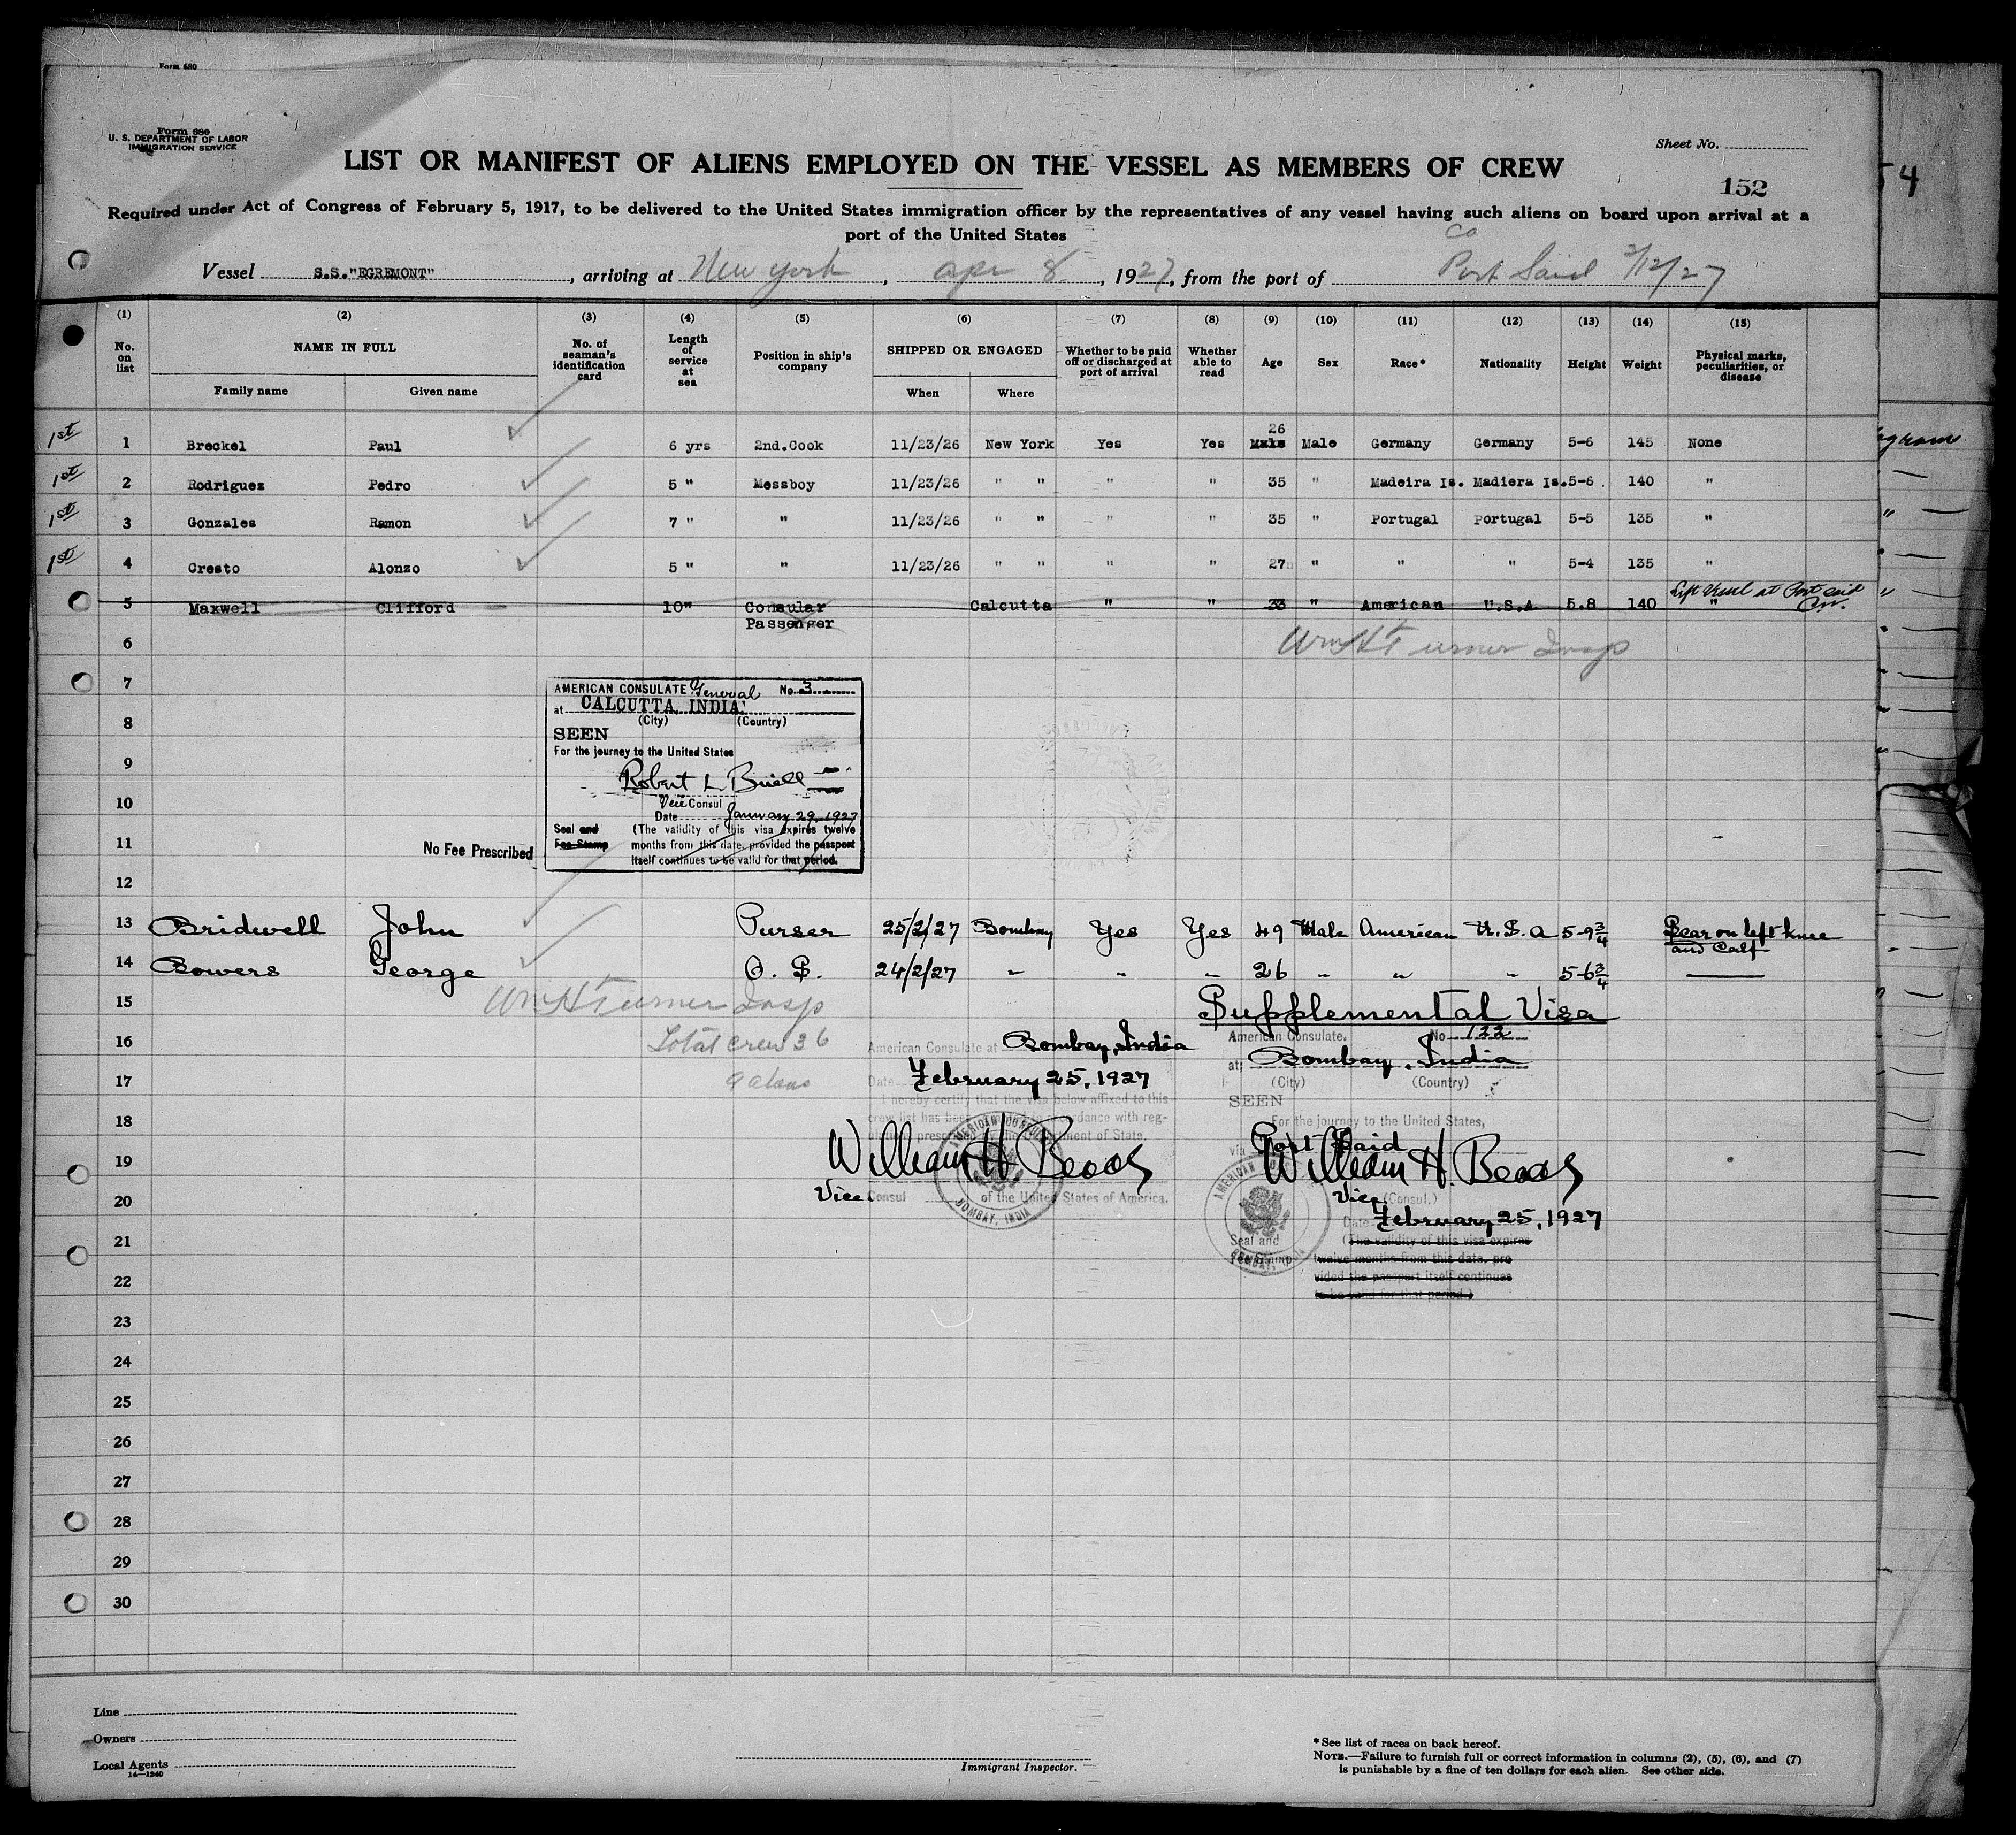 Form 680
Form 680
U. S. DEPARTMENT OF LABOR
IMMIGRATION SERVICE
Sheet No.
LIST OR MANIFEST OF ALIENS EMPLOYED ON THE VESSEL AS MEMBERS OF CREW
152
54
Required under Act of Congress of February 5, 1917, to be delivered to the United States immigration officer by the representatives of any vessel having such aliens on board upon arrival at a
port of the United States
Vessel S.S."EGREMONT", arriving at New York, Apr 8, 1927, from the port of Port Said 3/12/27
(1) (2) (3) (4) (5) (6) (7) (8) (9) (10) (11) (12) (13) (14) (15)
No. on list
NAME IN FULL
Family name Given name
No. of seaman's identification card
Length of service at sea
Position in ship's company
SHIPPED OR ENGAGED
When Where
Whether to be paid off or discharged at port of arrival
Whether able to read
Age Sex Race* Nationality Height Weight
Physical marks, peculiarities, or disease
26
1st 1 Breckel Paul 6 yrs 2nd.Cook 11/23/26 New York Yes Yes Male Male Germany Germany 5-6 145 None
1st 2 Rodriguez Pedro 5 " Messboy 11/23/26 " " " " 35 " Madeira Is. Madiera Is. 5-6 140 "
1st 3 Gonzales Ramon 7 " " 11/23/26 " " " " 35 " Portugal Portugal 5-5 135 "
1st 4 Cresto Alonzo 5 " " 11/23/26 " " " " 27 " " " 5-4 135 "
Left Vessel at Port Said
5 Maxwell Clifford 10" Consular Calcutta " " 33 " American U.S.A 5.8 140 "
Passenger
6 Wm H Turner Insp
7
8
9
10
11
12
AMERICAN CONSULATE General No. 3
at CALCUTTA, INDIA.
(City) (Country)
SEEN
For the journey to the United States
Robert L. Buell
Vice Consul
Date January 29, 1927
Seal and (The validity of this visa expires twelve
Fee Stamp months from this date, provided the passport
itself continues to be valid for that period.
No Fee Prescribed
13 Bridwell John Purser 25/2/27 Bombay Yes Yes 49 Male American U.S.A 5-9¾ Scar on left knee
and Calf
14 Bowers George O. S. 24/2/27 " " " 26 " " " 5-6¾
15 Wm H Turner Insp
Supplemental Visa
16 Total crew 36
17
American Consulate at Bombay, India
Date February 25, 1927
I hereby certify that the visa below affixed to this
crew list has been in accordance with reg-
ulations prescribed by the Department of State.
Vice Consul of the United States of America.
AMERICAN CONSULATE
BOMBAY, INDIA
American Consulate. No 122
at Bombay, India
(City) (Country)
SEEN
For the journey to the United States,
via Port Said
Vice (Consul,)
Date February 25, 1927
Seal and (The validity of this visa expires
twelve months from this date, pro
vided the passport itself continues
to be valid for that period.)
AMERICAN
BOMBAY, INDIA
18
19
20
21
22
23
24
25
26
27
28
29
30
Line
Owners
Local Agents
14—1240
Immigrant Inspector.
* See list of races on back hereof.
NOTE.—Failure to furnish full or correct information in columns (2), (5), (6), and (7)
is punishable by a fine of ten dollars for each alien. See other side.